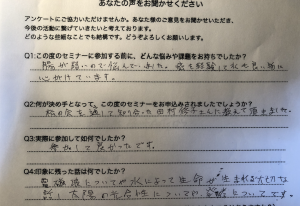 あなたの声をお聞かせください
アンケートにご協力いただけませんか。あなた様のご意見をお聞かせいただき、
今後の活動に繋げていきたいと考えております。
どのような些細なことでも結構です。どうぞよろしくお願いします。
Q1:この度のセミナーに参加する前に、どんな悩みや課題をお持ちでしたか?
腸が弱いので悩んでいました。癌を経験して水を良い物に
心がけています。
Q2:何が決め手となって、この度のセミナーをお申込されましたでしょうか?
の会を通して知り合った田村 さんに教えて頂きました。
Q3:実際に参加して如何でしたか?
参加して良かったです。
Q4:印象に残った話は何でしたか?
電磁波についてや水によって生命が生まれる大切な
太陽の光合性についてや についてです。